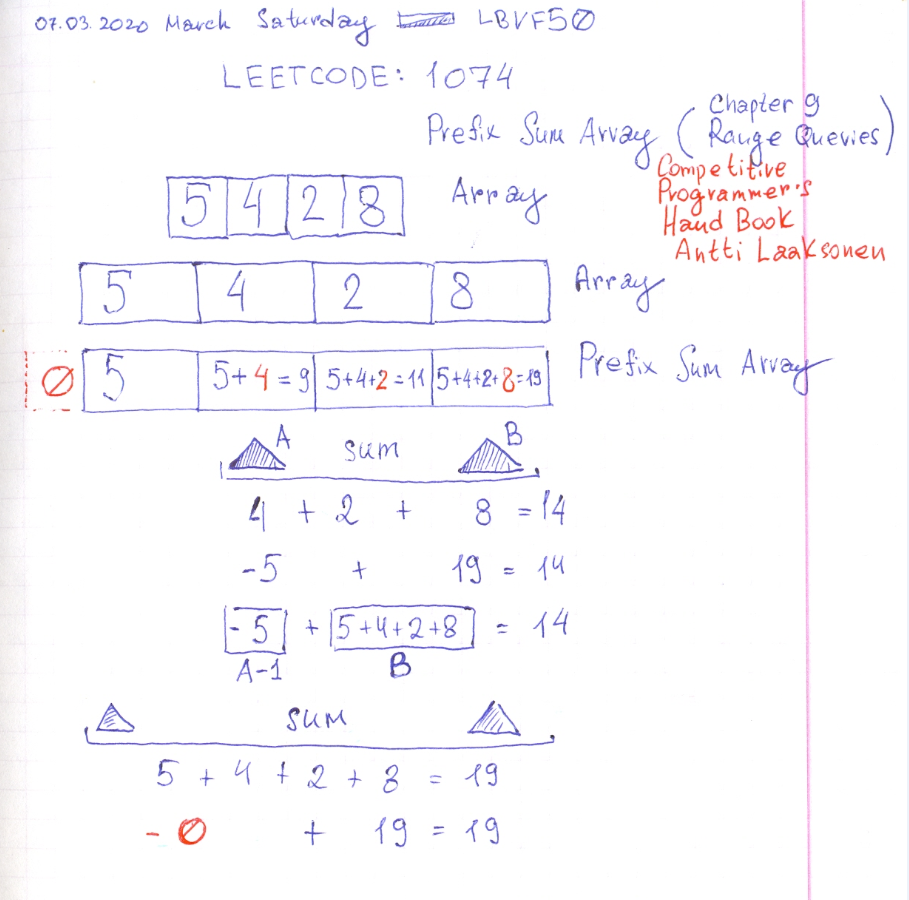 07.03.2020 March Saturday LBVF50
LEETCODE: 1074
Prefix Sum Array (Chapter 9
Range Queries)
Competitive
Programmer's
Hand Book
Antti Laaksonen
5 4 2 8 Array
5 4 2 8 Array
0 5 5+4=9 5+4+2=11 5+4+2+8=19 Prefix Sum Array
A sum B
4 + 2 + 8 = 14
-5 + 19 = 14
-5 + 5+4+2+8 = 14
A-1 B
sum
5 + 4 + 2 + 8 = 19
- 0 + 19 = 19